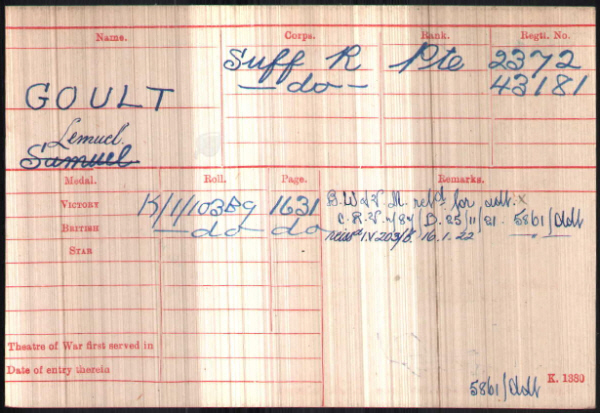 Name. Corps. Rank. Regtl. No.
Suff R Pte 2372
GOULT — do — 43181
Lemuel
Samuel
Medal. Roll. Page. Remarks.
VICTORY K/1/103B9 1631 B.W & V. M. retd. for adt. x
BRITISH — do — do C.R.V. 4/87 D. 25/11/21. 5861/Adt
STAR reissd I.V 203/B. 16.1.22
Theatre of War first served in
Date of entry therein
5861/Adt K. 1380